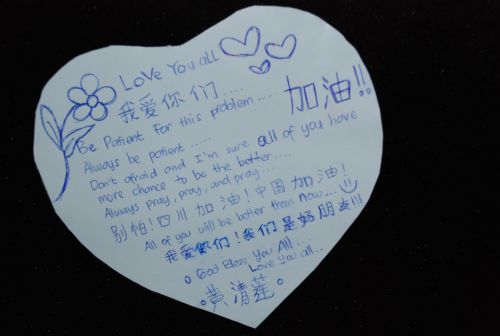 Love You all
我爱你们....
加油!!
Be Patient For this problem....
Always be patient .....
Don't afraid and I'm sure all of you have
more chance to be the better....
Always pray, pray, and pray....
别怕!四川 加油!中国 加油!
All of you will be better than now...
我爱你们!我们是好朋友!!!
God Bless You All...
Love You all..
黄清莲